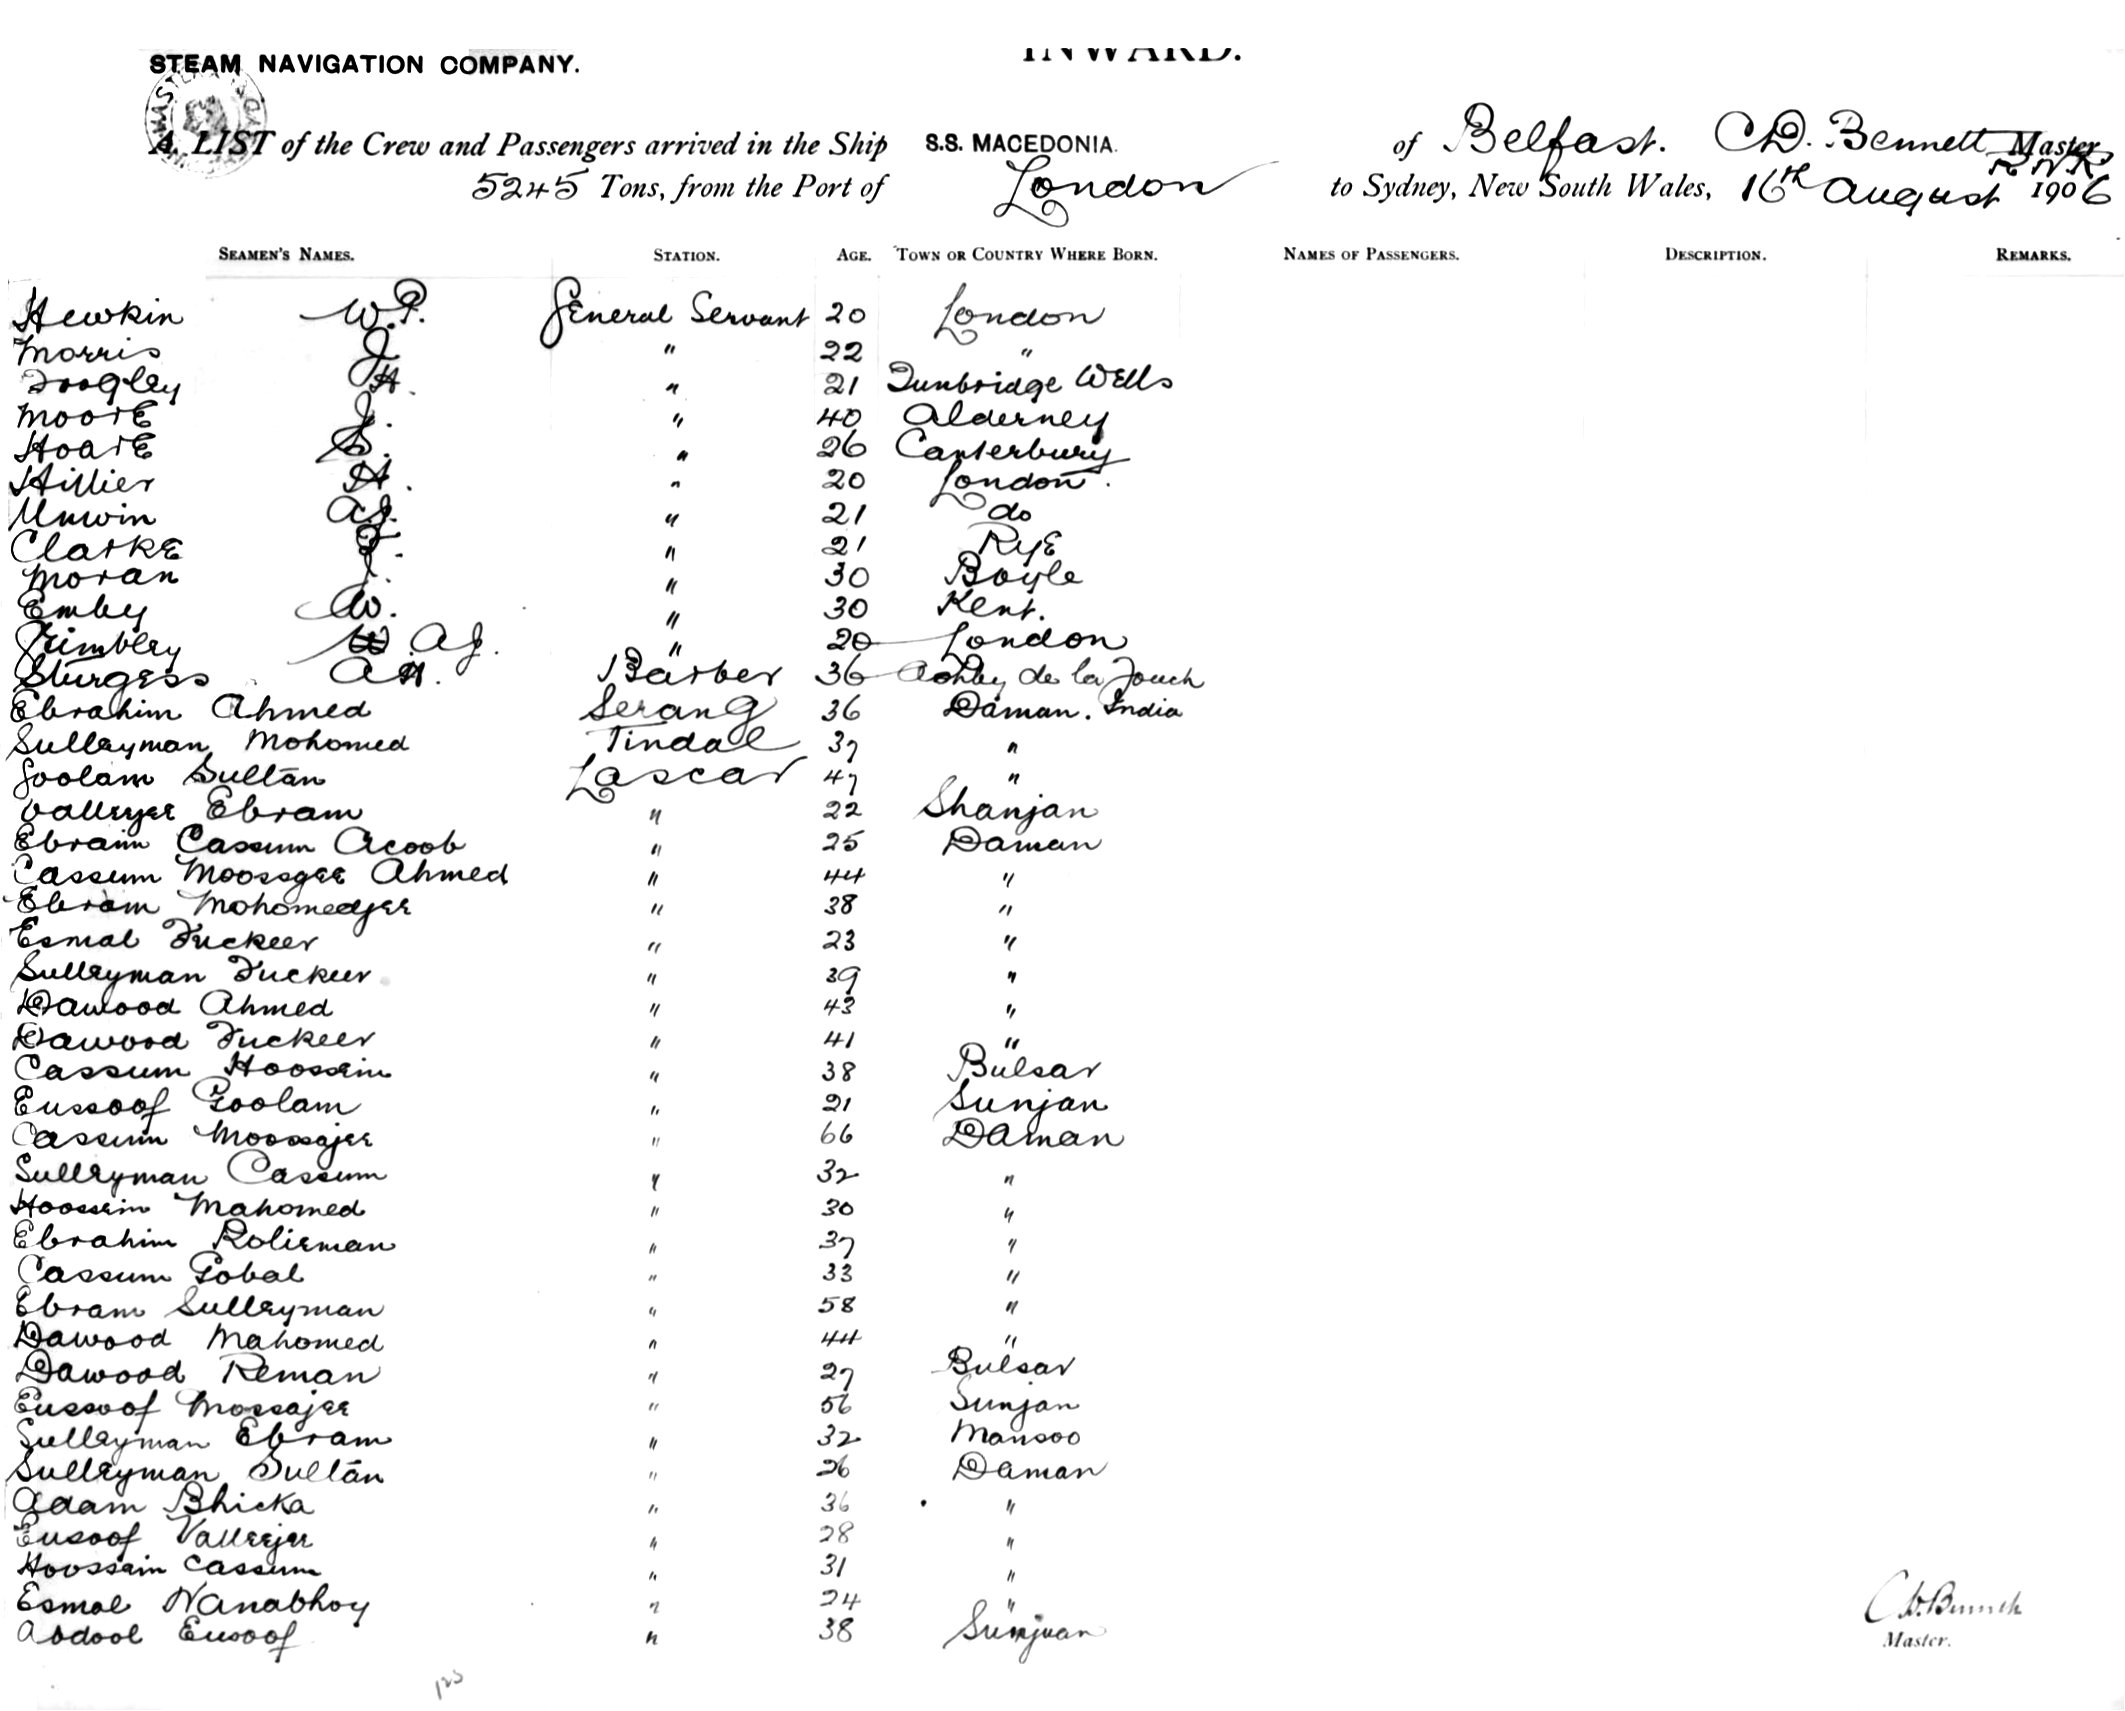 STEAM NAVIGATION COMPANY.
INWARD.
A LIST of the Crew and Passengers arrived in the Ship S.S. MACEDONIA. of Belfast. CD. Bennett Master R.N.R.
5245 Tons, from the Port of London to Sydney, New South Wales, 16th August 1906
SEAMEN'S NAMES. STATION. AGE. TOWN OR COUNTRY WHERE BORN. NAMES OF PASSENGERS. DESCRIPTION. REMARKS.
Hewkin W.P. General Servant 20 London
Morris J. " 22 "
H. " 21 Tunbridge Wells
Moore J. " 40 Alderney
Hoare S. " 26 Canterbury
Hillier H. " 20 London.
Unwin A.J. " 21 do
Clarke F. " 21 Rye
Moran J. " 30 Boyle
Emby W. " 30 Kent.
Trimbley A.J. " 20 London
Sturgess A.H. Barber 36 Ashby de la Zouch
Ebrahim Ahmed Serang 36 Daman. India
Sulleyman Mohomed Tindal 37 "
Goolam Sultan Lascar 47 "
Valleyjee Ebram " 22 Shanjan
Ebraim Cassum Acoob " 25 Daman
Cassum Moossgee Ahmed " 44 "
Ebram Mohomedjee " 38 "
Esmal Fuckeer " 23 "
Sulleyman Fuckeer " 39 "
Dawood Ahmed " 43 "
Dawood Fuckeer " 41 "
Cassum Hoossein " 38 Bulsar
Eussoof Goolam " 21 Sunjan
Cassum Moossajee " 66 Daman
Sulleyman Cassum " 32 "
Hoossein Mahomed " 30 "
Ebrahim Rolieman " 37 "
Cassum Gobal " 33 "
Ebram Sulleyman " 58 "
Dawood Mahomed " 44 "
Dawood Reman " 27 Bulsar
Eussoof Mossajee " 56 Sunjan
Sulleyman Ebram " 32 Mansoo
Sulleyman Sultan " 26 Daman
Adam Bhicka " 36 "
Eusoof Valleejee " 28 "
Hoossein Cassum " 31 "
Esmal Nanabhoy " 24 "
Abdool Eusoof " 38 Sunjuan
C.D. Bennett
Master.
123